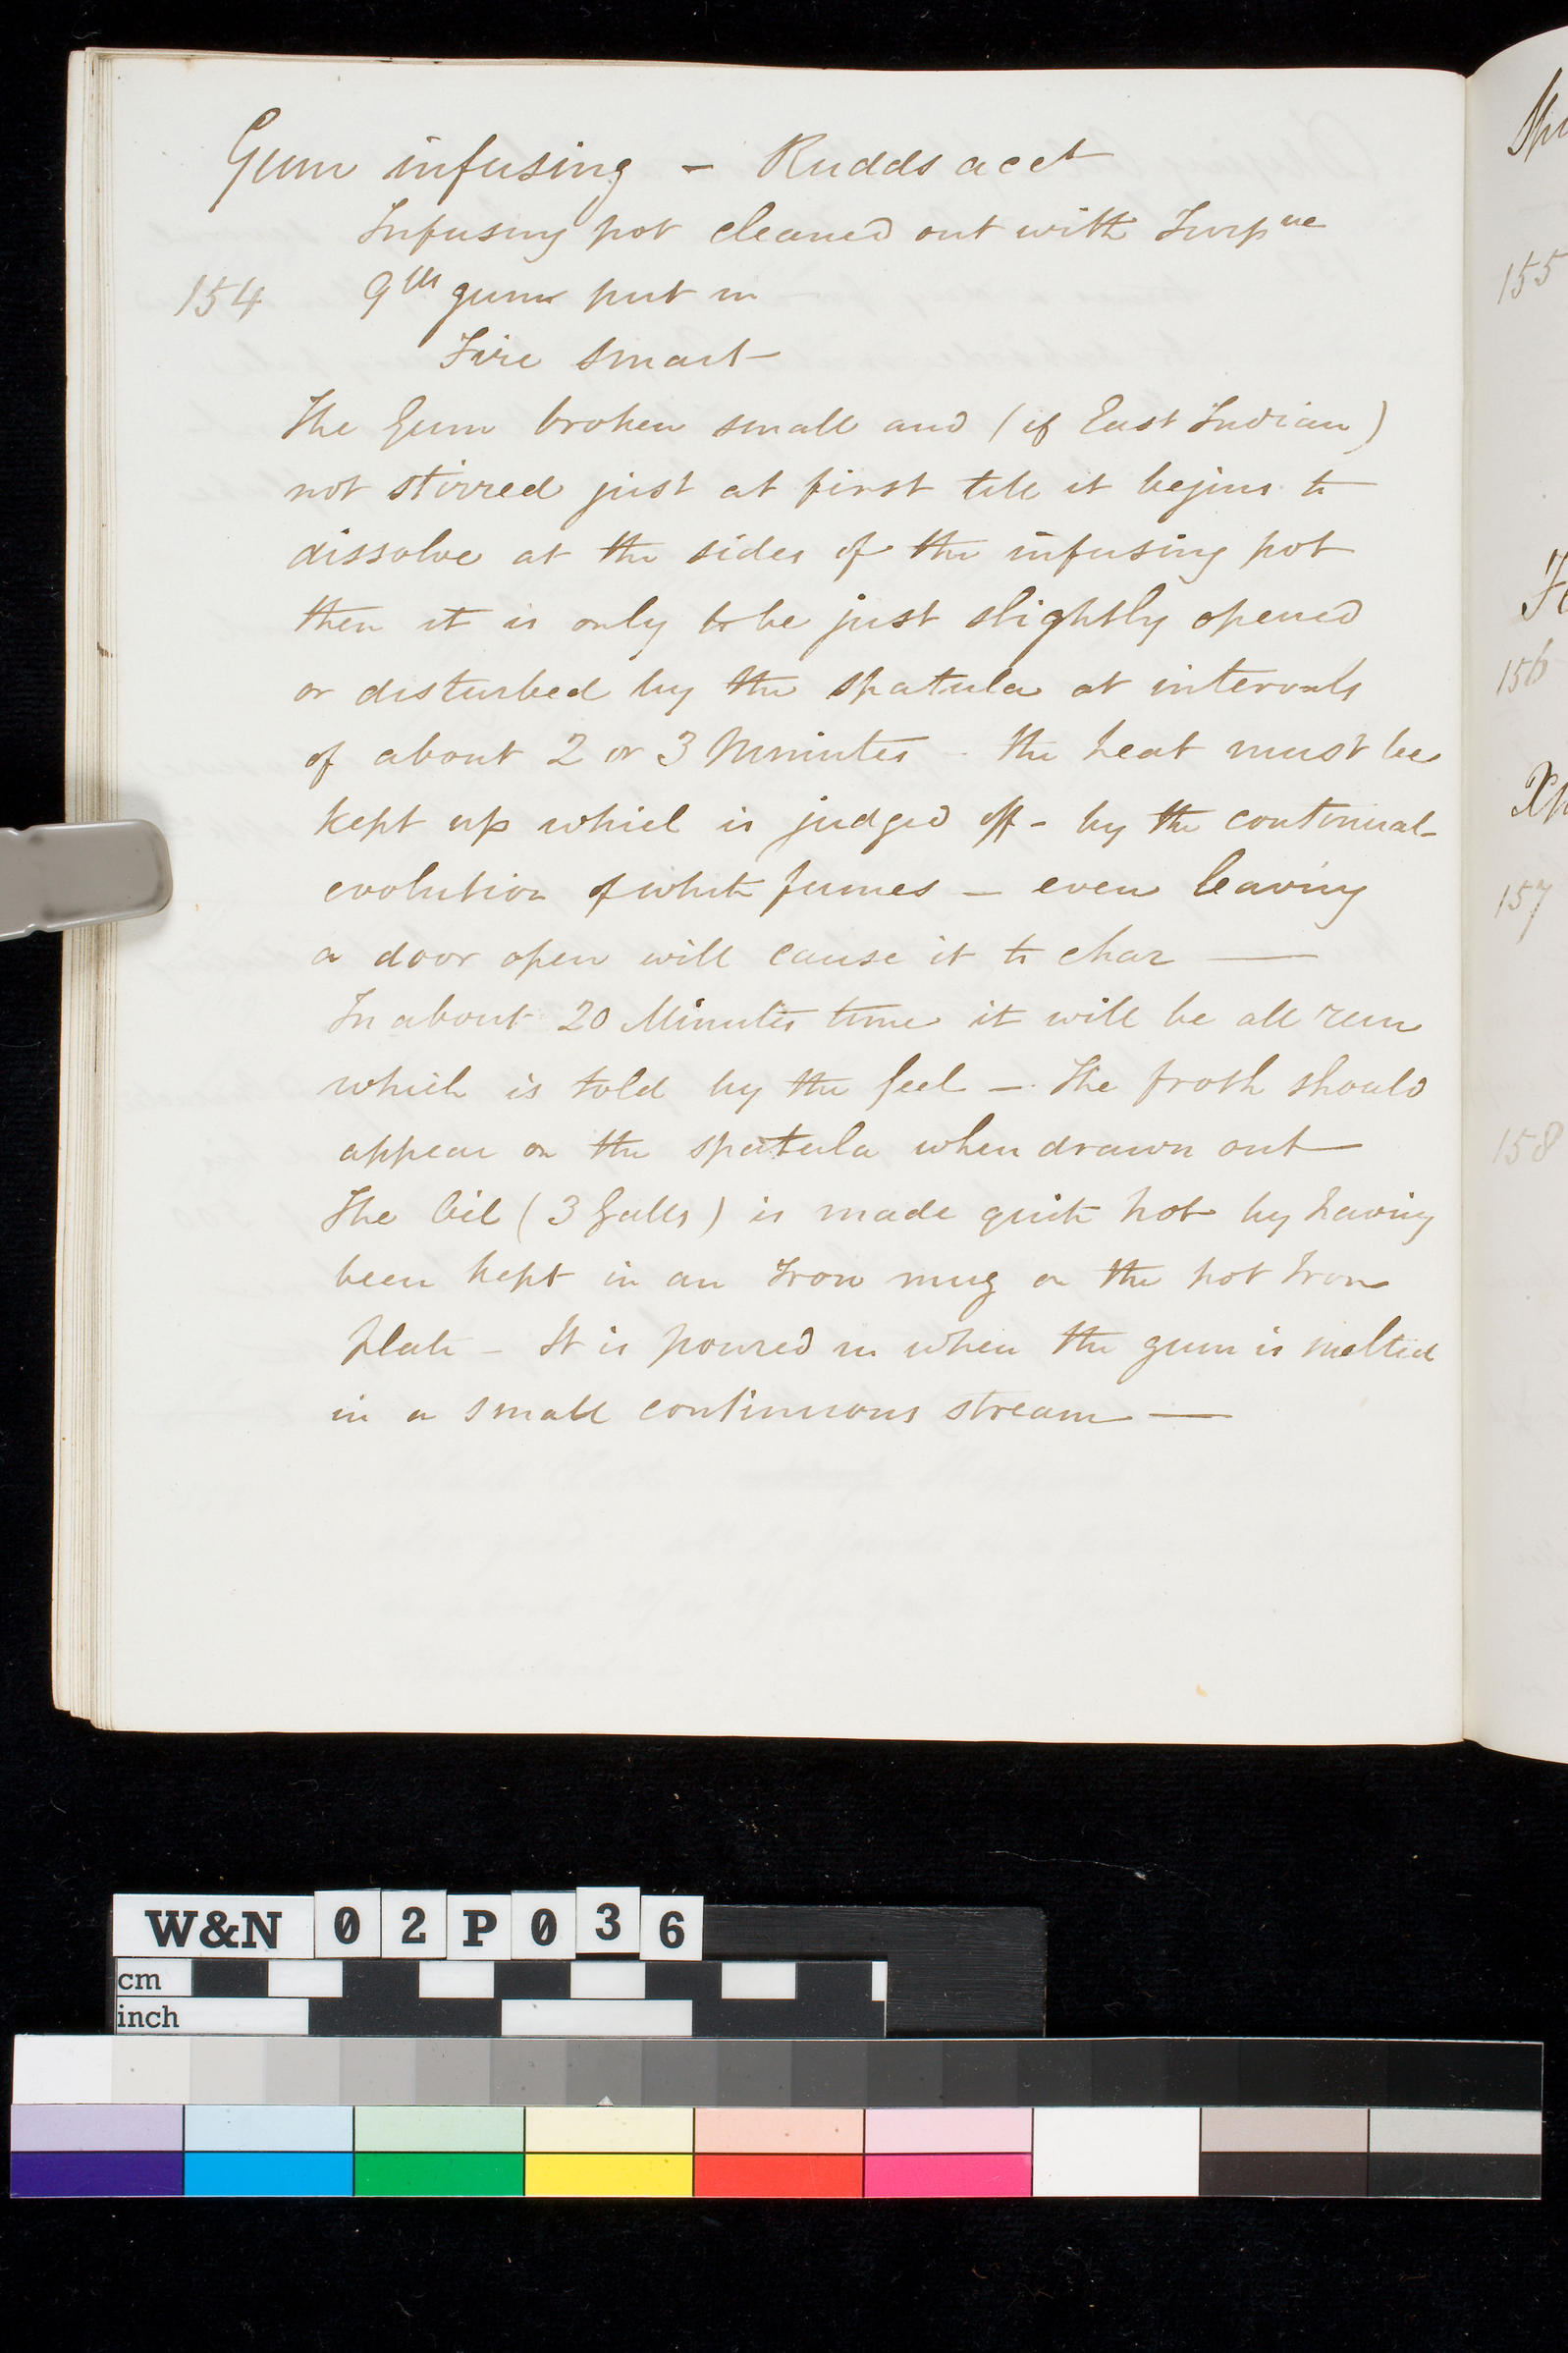 Gum infusing - Rudds acct
Infusing pot cleaned out with Turpne
154 9lbs gum put in
Fire smart
The Gum broken small and (if East Indian)
not stirred just at first till it begins to
dissolve at the sides of the infusing pot
then it is only to be just slightly opened
or disturbed by the spatula at intervals
of about 2 or 3 Minutes - the heat must be
kept up which is judged off - by the continual
evolution of white fumes - even leaving
a door open will cause it to char —
In about 20 Minutes time it will be all run
which is told by the feel - The froth should
appear on the spatula when drawn out
The Oil (3 Galls) is made quite hot by having
been kept in an Iron mug on the hot Iron
plate - It is poured in when the gum is melted
in a small continuous stream —
155
156
157
158
W&N 02P036
cm
inch